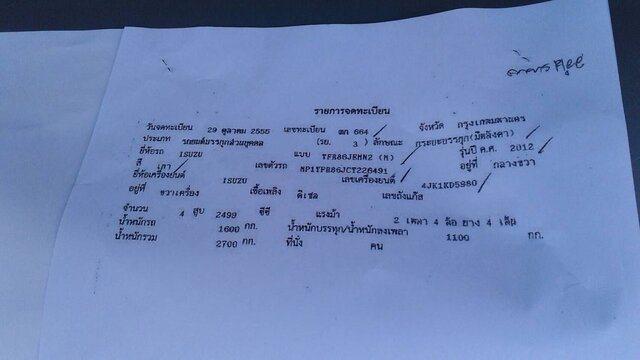 รายการจดทะเบียน
วันจดทะเบียน 29 ตุลาคม 2555 เลขทะเบียน ฒก 664 จังหวัด กรุงเทพมหานคร
ประเภท รถยนต์บรรทุกส่วนบุคคล (รย. 3) ลักษณะ กระบะบรรทุก(มีหลังคา)
ยี่ห้อรถ ISUZU แบบ TFR86JEMN2 (M) รุ่นปี ค.ศ. 2012
สี เทา เลขตัวรถ MP1TFR86JCT226491 อยู่ที่ กลางขวา
ยี่ห้อเครื่องยนต์ ISUZU เลขเครื่องยนต์ 4JK1KD5980
อยู่ที่ ขวาเครื่อง เชื้อเพลิง ดีเซล เลขถังแก๊ส
จำนวน 4 สูบ 2499 ซีซี แรงม้า 2 เพลา 4 ล้อ ยาง 4 เส้น
น้ำหนักรถ 1600 กก. น้ำหนักบรรทุก/น้ำหนักลงเพลา 1100 กก.
น้ำหนักรวม 2700 กก. ที่นั่ง คน